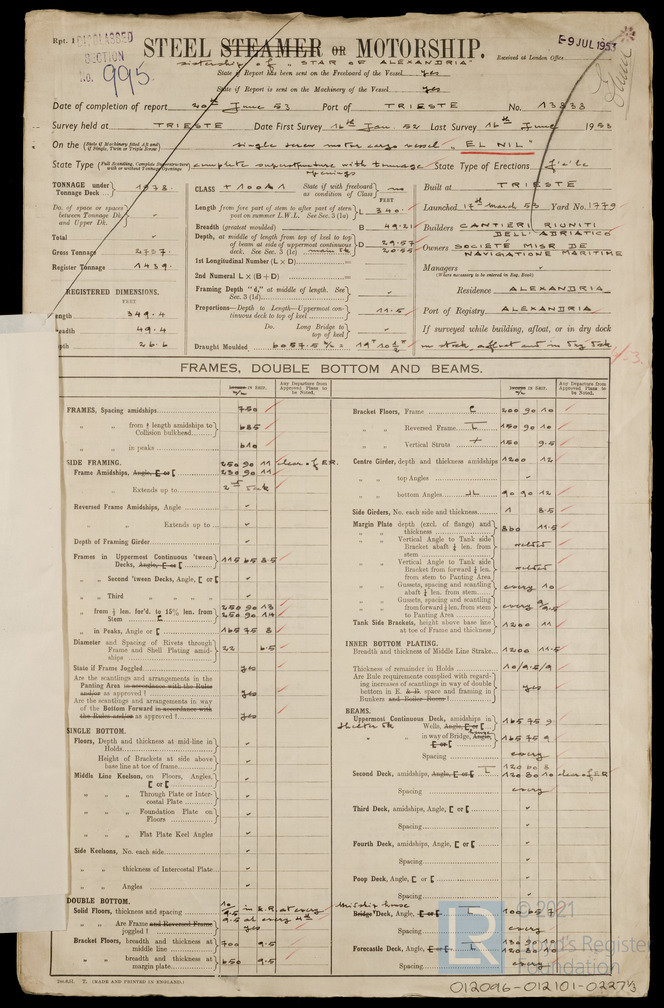 Rpt. 1
DISCLASSED
SECTION
No. 995.
STEEL STEAMER OR MOTORSHIP.
E-9 JUL 1953
Received at London Office
sistership of "STAR OF ALEXANDRIA"
State if Report has been sent on the Freeboard of the Vessel yes
State if Report is sent on the Machinery of the Vessel yes
Date of completion of report 20th June 53 Port of TRIESTE No. 13833
Survey held at TRIESTE Date First Survey 16th Jan. 52 Last Survey 16th June 1953
On the (State if Machinery fitted Aft and if Single, Twin or Triple Screw) single screw motor cargo vessel "EL NIL"
State Type (Full Scantling, Complete Superstructure with or without Tonnage Openings) complete superstructure with tonnage openings State Type of Erections
TONNAGE under Tonnage Deck
Do. of space or spaces between Tonnage Dk. and Upper Dk.
Total
Gross Tonnage 2757.
Register Tonnage 1439.
REGISTERED DIMENSIONS.
FEET
ength 349.4
eadth 49.4
pth 26.6
CLASS + 100A1 State if with freeboard as condition of Class no
FEET
Length from fore part of stem to after part of stern post on summer L.W.L. See Sec. 3 (1a) L 340.
Breadth (greatest moulded) B 49.21
Depth, at middle of length from top of keel to top of beam at side of uppermost continuous deck. See Sec. 3 (1c) D 29.57
20.55
1st Longitudinal Number (L × D)
2nd Numeral L × (B + D)
Framing Depth "d," at middle of length. See Sec. 3 (1d)
Proportions—Depth to Length—Uppermost continuous deck to top of keel 11.5
Do. Long Bridge to top of keel
Draught Moulded
Built at TRIESTE
Launched 17th March 53 Yard No. 1779
Builders CANTIERI RIUNITI DELL'ADRIATICO
Owners SOCIETÉ MISR DE NAVIGATIONE MARITIME
Managers
(Where necessary to be entered in Reg. Book)
Residence ALEXANDRIA
Port of Registry ALEXANDRIA
If surveyed while building, afloat, or in dry dock
on stock, afloat and in dry dock
FRAMES, DOUBLE BOTTOM AND BEAMS.
Any Departure from Approved Plans to be Noted.
FRAMES, Spacing amidships 750
" " from ⅕ length amidships to Collision bulkhead 685
" " in peaks 610
SIDE FRAMING. 250 90 11 clear of E.R.
Frame Amidships, Angle, [ or [ 230 90 11
" " Extends up to 2nd deck
Reversed Frame Amidships, Angle
" " Extends up to
Depth of Framing Girder
Frames in Uppermost Continuous 'tween Decks, Angle, [ or [ 115 65 8.5
" " Second 'tween Decks, Angle, [ or [
" " Third " "
" " from ⅕ len. for'd. to 15% len. from Stem 250 90 13
250 90 14
" " in Peaks, Angle or [ 165 75 8
Diameter and Spacing of Rivets through Frame and Shell Plating amidships 22 6.5
State if Frame Joggled yes
Are the scantlings and arrangements in the Panting Area in accordance with the Rules and/or as approved ? yes
Are the scantlings and arrangements in way of the Bottom Forward in accordance with the Rules and/or as approved ? yes
SINGLE BOTTOM.
Floors, Depth and thickness at mid-line in Holds
Height of Brackets at side above base line at toe of frame
Middle Line Keelson, on Floors, Angles, [ or [
" " Through Plate or Intercostal Plate
" " Foundation Plate on Floors
" " Flat Plate Keel Angles
Side Keelsons, No. each side
" " thickness of Intercostal Plate
" " Angles
DOUBLE BOTTOM.
Solid Floors, thickness and spacing 10 in E.R. at every
9.5 at every 4th
" " Are Frame and Reversed Frame joggled ? yes
Bracket Floors, breadth and thickness at middle line 700 9.5
" " breadth and thickness at margin plate 650 9.5
Bracket Floors, Frame 200 90 10
" " Reversed Frame 150 90 10
" " Vertical Struts 150 9.5
Centre Girder, depth and thickness amidships 1200 12
" " top Angles
" " bottom Angles 90 90 12
Side Girders, No. each side and thickness 1 8.5
Margin Plate depth (excl. of flange) and thickness 860 11.5
" " Vertical Angle to Tank side Bracket abaft ¼ len. from stem welded
" " Vertical Angle to Tank side Bracket from forward ¼ len. from stem to Panting Area welded
" " Gussets, spacing and scantling abaft ¼ len. from stem every 10
" " Gussets, spacing and scantling from forward ¼ len. from stem to Panting Area every 9.5
Tank Side Brackets, height above base line at toe of Frame and thickness 1200 11
INNER BOTTOM PLATING.
Breadth and thickness of Middle Line Strake 1200 11.5
Thickness of remainder in Holds 10/9.5/9
Are Rule requirements complied with regarding increases of scantlings in way of double bottom in E. & B. space and framing in Bunkers and Boiler Room ? yes
BEAMS.
Uppermost Continuous Deck, amidships in Wells, Angle, [ or [ 165 75 9
Shelter Dk " " in way of Bridge, Angle, [ or [ 165 75 9
Spacing every
Second Deck, amidships, Angle, [ or [ 120 80 8
120 80 10 clear of ER
Spacing every
Third Deck, amidships, Angle, [ or [
Spacing
Fourth Deck, amidships, Angle, [ or [
Spacing
Poop Deck, Angle, [ or [
Spacing
Midship house
Bridge Deck, Angle, [ or [
Spacing every
Forecastle Deck, Angle, [ or [
Spacing every
© 2021
LR
Lloyd's Register
Foundation
7. (MADE AND PRINTED IN ENGLAND.)
012096-012101-0227 1/3